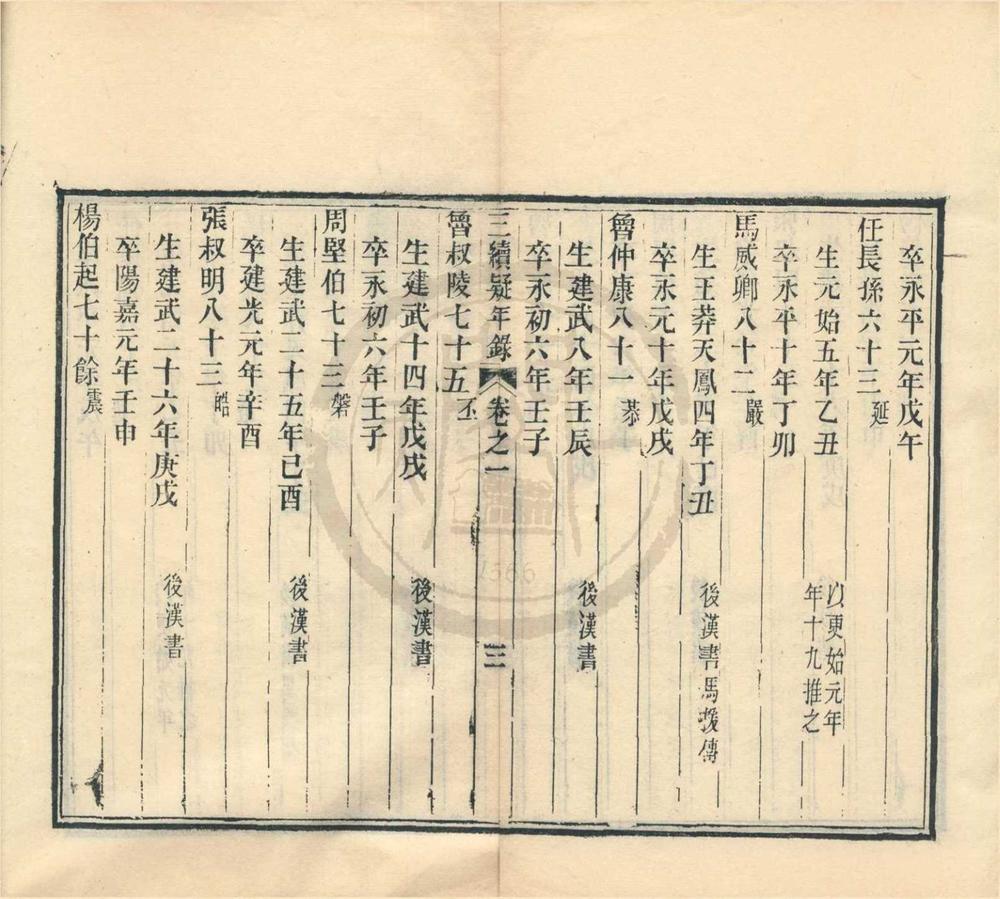 卒永平元年戊午
任長孫六十三 延
生元始五年乙丑 以更始元年
年十九推之
卒永平十年丁卯
馬威卿八十二 嚴
生王莽天鳳四年丁丑 後漢書馬援傳
卒永元十年戊戌
魯仲康八十一 恭
生建武八年壬辰 後漢書
卒永初六年壬子
三續疑年錄 卷之一 三
魯叔陵七十五 丕
生建武十四年戊戌 後漢書
卒永初六年壬子
周堅伯七十三 磐
生建武二十五年己酉 後漢書
卒建光元年辛酉
張叔明八十三 皓
生建武二十六年庚戌 後漢書
卒陽嘉元年壬申
楊伯起七十餘 震
1566